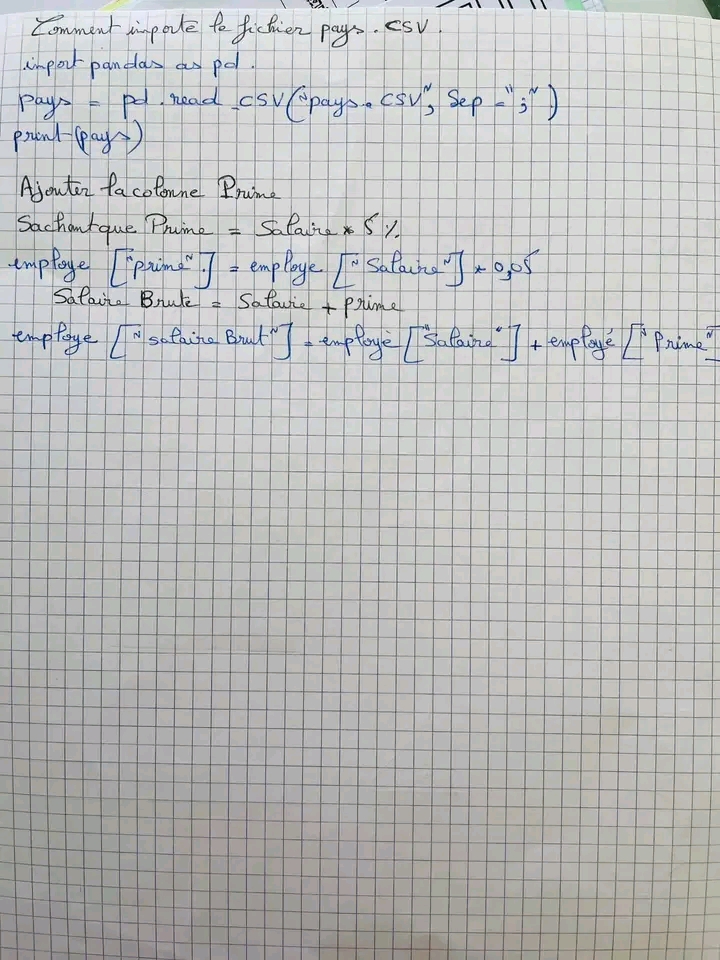 Comment importe le fichier pays.CSV.
import pandas as pd.
pays = pd.read_CSV("pays.CSV", Sep = ";")
print(pays)
Ajouter la colonne Prime
Sachant que Prime = Salaire * 5 %
employe ["prime".] = employe ["Salaire"] * 0,05
Salaire Brute = Salaire + prime
employe ["salaire Brut"] = employé ["Salaire"] + employé ["Prime"]